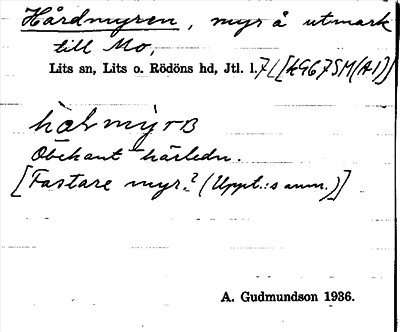 Hårdmyren, myr å utmark
till Mo,
Lits sn, Lits o. Rödöns hd, Jtl. l.
Obekant härledn.
[Fastare myr? (Uppt.:s anm.)]
A. Gudmundson 1936.